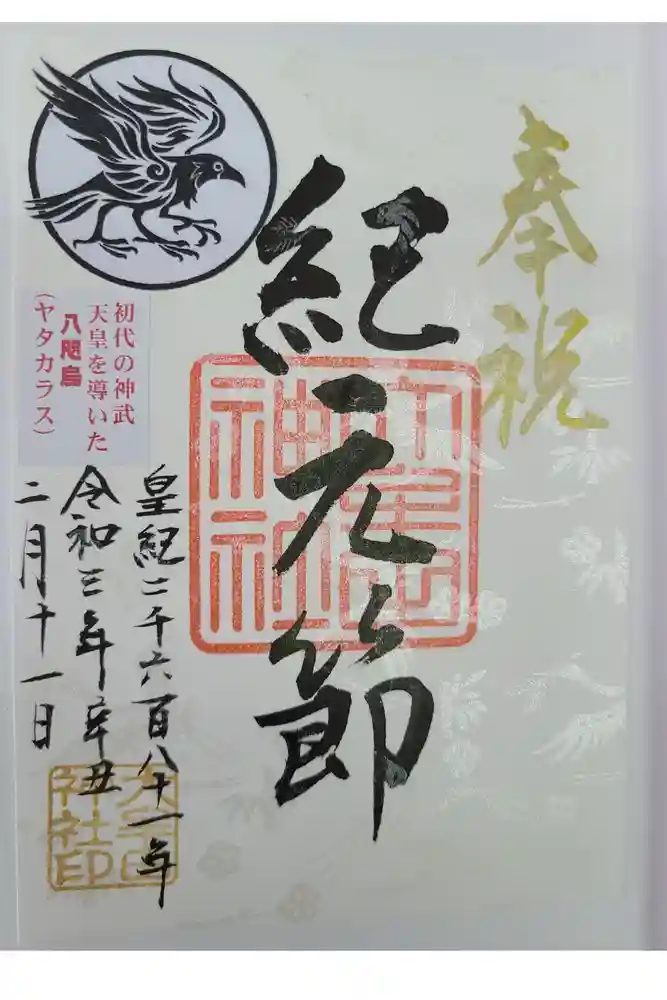 奉祝
紀元節
初代の神武
天皇を導いた
八咫烏
(ヤタカラス)
皇紀二千六百八十一年
令和三年辛丑
二月十一日
神社
神社印